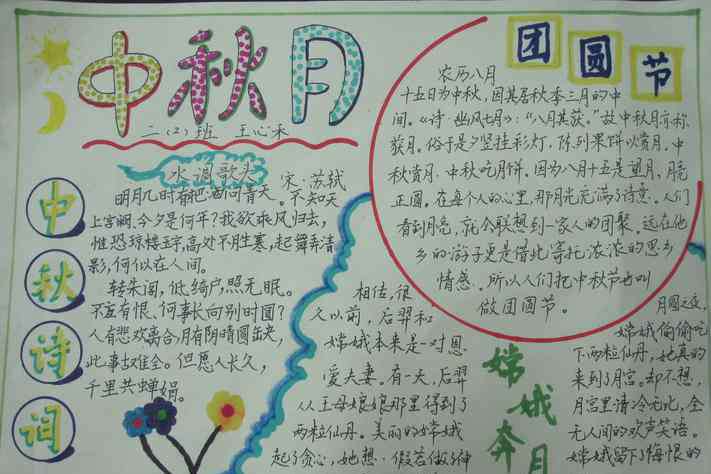 中秋月
二(2)班 王心禾
水调歌头
宋·苏轼
明月几时有把酒问青天。不知天
上宫阙、今夕是何年？我欲乘风归去，
惟恐琼楼玉宇，高处不胜寒，起舞弄清
影，何似在人间。
转朱阁，低绮户，照无眠。
不应有恨、何事长向别时圆？
人有悲欢离合，月有阴晴圆缺，
此事古难全。但愿人长久，
千里共蝉娟。
中
秋
诗
词
团圆节
农历八月
十五日为中秋，因其居秋季三月的中
间。《诗·幽风七月》：“八月其获。”故中秋月亦称
获月。俗于是夕竖挂彩灯，陈列果饼以赏月，中
秋赏月、中秋吃月饼。因为八月十五是望月，月亮
正圆。在每个人的心里，那月光充满了诗意。人们
看到月亮，就会联想到一家人的团聚。远在他
乡的游子更是借此寄托浓浓的思乡
情感。所以人们把中秋节也叫
做团圆节。
嫦娥奔月
相传，很
久以前，后羿和
嫦娥本来是一对恩
爱夫妻。有一天，后羿
从王母娘娘那里得到了
两粒仙丹。美丽的嫦娥
起了贪心，她想，假若做了神
月圆之夜，
嫦娥偷偷吃
下两粒仙丹，她真的
来到了月宫。却不想，
月宫里清冷无比，全
无人间的欢声笑语。
嫦娥留下了悔恨的